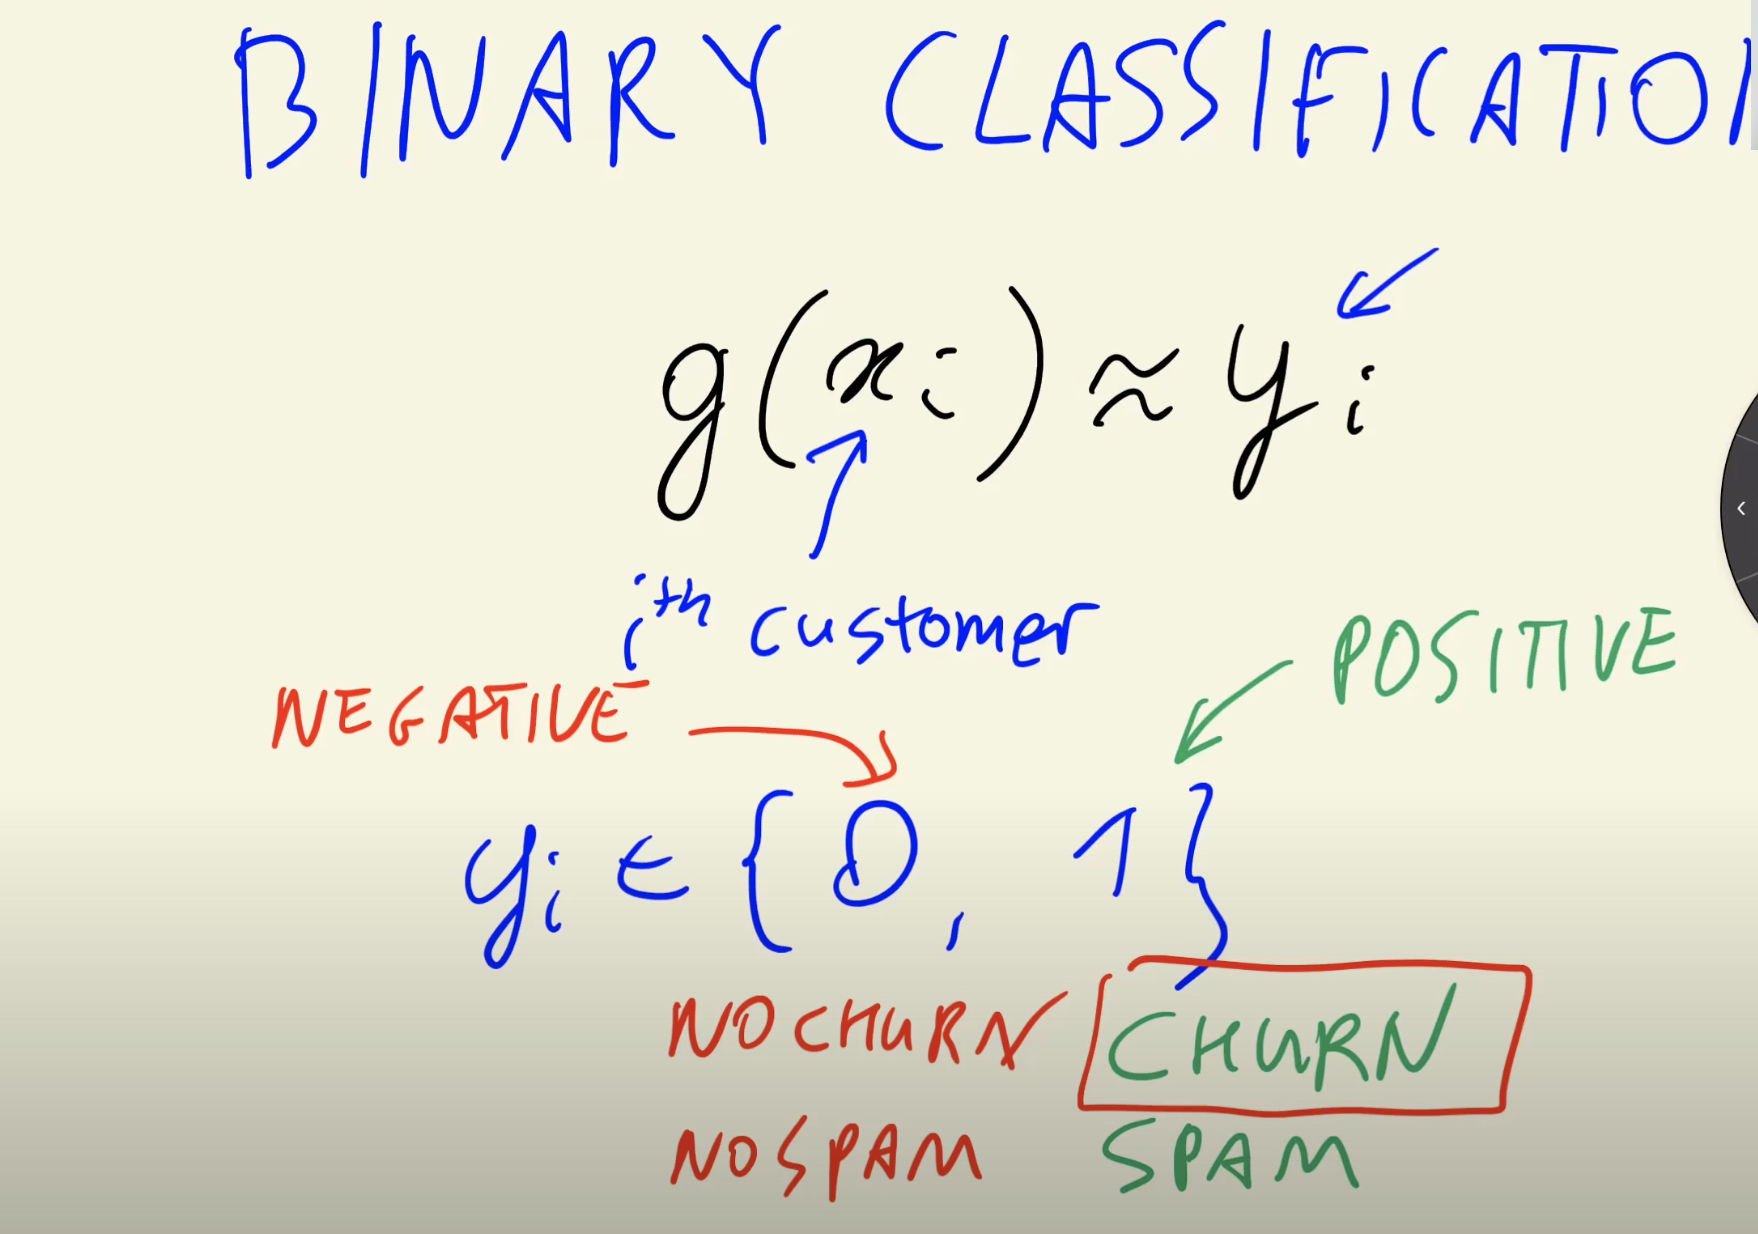 BINARY CLASSIFICATION
g(xi) ≈ yi
ith customer
NEGATIVE
POSITIVE
yi ∈ {0, 1}
NO CHURN CHURN
NO SPAM SPAM